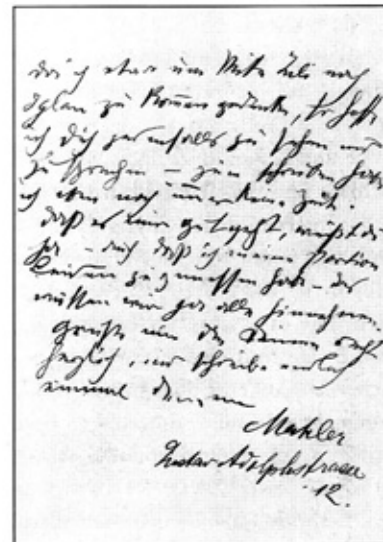 daß ich etwa um Mitte Juli nach
Iglau zu kommen gedenke, so hoffe
ich Dich jedenfalls zu sehen und
zu sprechen – zum schreiben habe
ich eben noch immer keine Zeit.
daß es mir gut geht, weißt du
ja – auch daß ich meine Portion
Leiden zu genießen habe – das
müssen wir ja alle hinnehmen.
Grüße mir die Deinen recht
herzlich, und schreibe endlich
einmal deinem
Mahler
12.